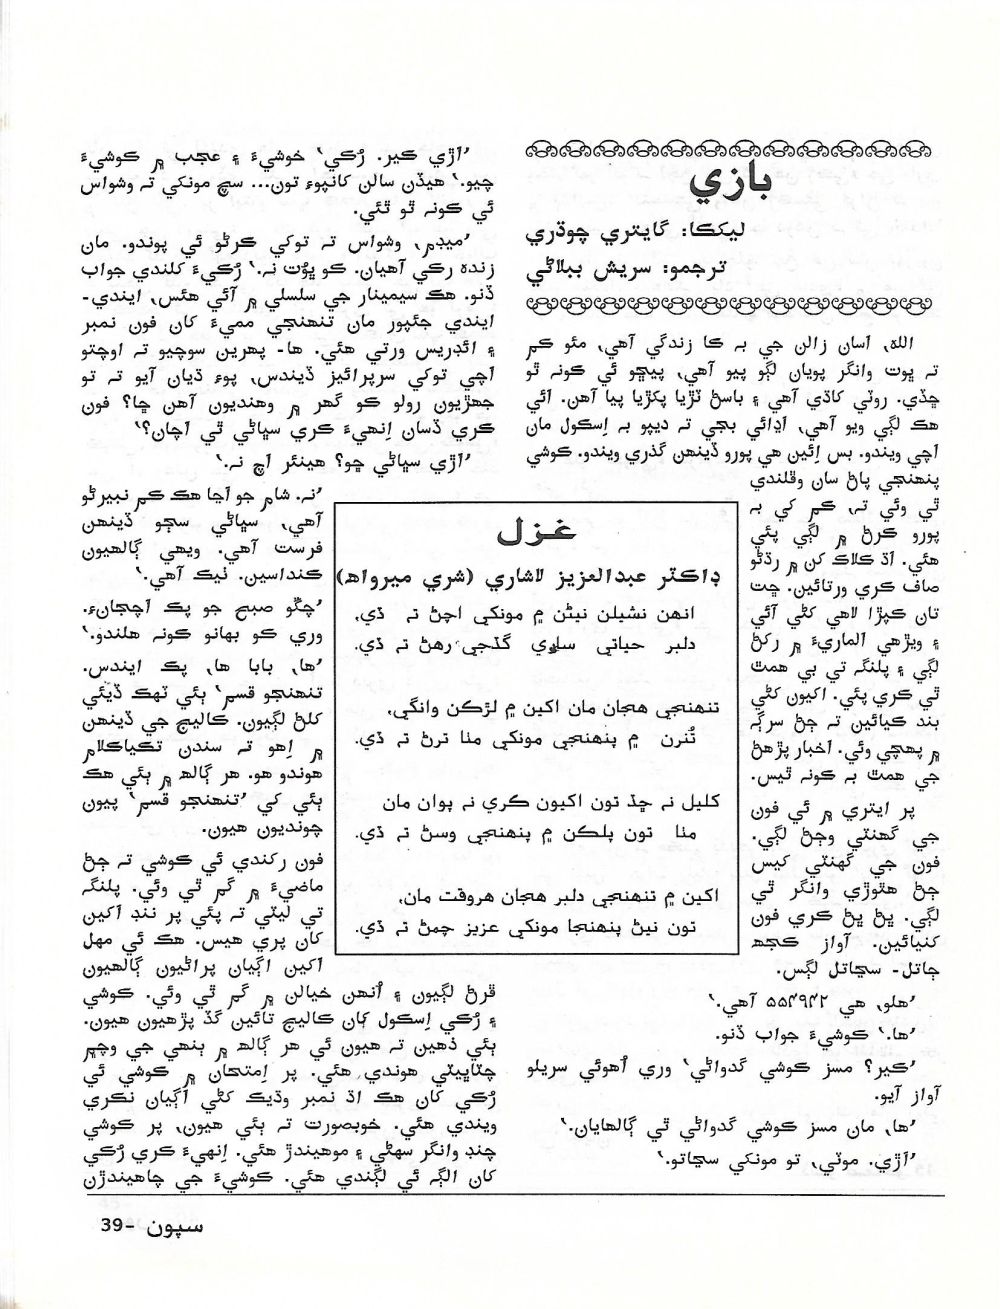 بازي
ليکڪا: گايتري چوڌري
ترجمو: سريش ٻٻلاڻي
الله، اسان زالن جي بہ ڪا زندگي آهي، مئو ڪم
تہ ڀوت وانگر پويان لڳو پيو آهي، پيڇو ئي ڪونہ ٿو
ڇڏي. روٽي کاڌي آهي ۽ باسڻ ٽڙيا پکڙيا پيا آهن. اٺي
هڪ لڳي ويو آهي، اڍائي بجي تہ ديپو بہ اِسڪول مان
اچي ويندو. بس اِئين هي پورو ڏينهن گذري ويندو. ڪوشي
پنهنجي پاڻ سان وڦلندي
ٿي وئي تہ، ڪم کي بہ
پورو ڪرڻ ۾ لڳي پئي
هئي. اڌ ڪلاڪ کن ۾ رڌڻو
صاف ڪري ورتائين. ڇت
تان ڪپڙا لاهي کڻي آئي
۽ ويڙهي الماريءَ ۾ رکڻ
لڳي ۽ پلنگ تي بي همت
ٿي ڪري پئي. اکيون کڻي
بند ڪيائين تہ ڄڻ سرڳ
۾ پهچي وئي. اخبار پڙهڻ
جي همت بہ ڪونہ ٿيس.
پر ايتري ۾ ئي فون
جي گهنٽي وڄڻ لڳي.
فون جي گهنٽي کيس
ڄڻ هٿوڙي وانگر ٿي
لڳي. ڀڻ ڀڻ ڪري فون
کنيائين. آواز ڪجهہ
ڄاتل- سڃاتل لڳس.
’هلو، هي ۵۵۴۹۴۲ آهي.‘
’ها.‘ ڪوشيءَ جواب ڏنو.
’ڪير؟ مسز ڪوشي گدواڻي‘ وري اُهوئي سريلو
آواز آيو.
’ها، مان مسز ڪوشي گدواڻي ٿي ڳالهايان.‘
’اَڙي. موٽي، تو مونکي سڃاتو.‘
’اَڙي ڪير. رُڪي‘ خوشيءَ ۽ عجب ۾ ڪوشيءَ
چيو.‘ هيڏن سالن کانپوءِ تون... سچ مونکي تہ وشواس
ئي ڪونہ ٿو ٿئي.
’ميڊم، وشواس تہ توکي ڪرڻو ئي پوندو. مان
زنده رڪي آهيان. ڪو ڀوُت نہ.‘ رُڪيءَ کلندي جواب
ڏنو. هڪ سيمينار جي سلسلي ۾ آئي هئس، ايندي-
ايندي جئپور مان تنهنجي ممي‎ءَ کان فون نمبر
۽ ائڊريس ورتي هئي. ها- پهرين سوچيو تہ اوچتو
اچي توکي سرپرائيز ڏيندس، پوءِ ڌيان آيو تہ تو
جهڙيون رولو ڪو گهر ۾ وهنديون آهن ڇا؟ فون
ڪري ڏسان اِنهيءَ ڪري سڀاڻي ٿي اچان؟‘
’اَڙي سڀاڻي ڇو؟ هينئر اچ نہ.‘
’نہ. شام جو اَڃا هڪ ڪم نبيرڻو
آهي، سڀاڻي سڄو ڏينهن
فرست آهي. ويهي ڳالهيون
ڪنداسين. ٺيڪ آهي.‘
’چڱو صبح جو پڪ اچجانءِ.
وري ڪو بهانو ڪونہ هلندو.‘
’ها، بابا ها، پڪ ايندس.
تنهنجو قسم‘ ٻئي ٺهڪ ڏيئي
کلڻ لڳيون. ڪاليج جي ڏينهن
۾ اِهو تہ سندن تڪياڪلام
هوندو هو. هر ڳالهہ ۾ ٻئي هڪ
ٻئي کي ’تنهنجو قسم‘ پيون
چونديون هيون.
فون رکندي ئي ڪوشي تہ ڄڻ
ماضيءَ ۾ گم ٿي وئي. پلنگ
تي ليٽي تہ پئي پر ننڊ اکين
کان پري هيس. هڪ ئي مهل
اکين اڳيان پراڻيون ڳالهيون
ڦرڻ لڳيون ۽ اُنهن خيالن ۾ گم ٿي وئي. ڪوشي
۽ رُڪي اِسڪول کان ڪاليج تائين گڏ پڙهيون هيون.
ٻئي ذهين تہ هيون ئي هر ڳالهہ ۾ ٻنهي جي وچ۾
چٽاڀيٽي هوندي هئي. پر اِمتحان ۾ ڪوشي ئي
رُڪي کان هڪ اڌ نمبر وڌيڪ کڻي اڳيان نڪري
ويندي هئي. خوبصورت تہ ٻئي هيون، پر ڪوشي
چنڊ وانگر سهڻي ۽ موهيندڙ هئي. اِنهيءَ ڪري رُڪي
کان الڳ ئي لڳندي هئي. ڪوشيءَ جي چاهيندڙن
غزل
ڊاڪٽر عبدالعزيز لاشاري (شري ميرواهہ)
انهن نشيلن نيڻن ۾ مونکي اچڻ تہ ڏي،
دلبر حياتي ساري گڏجي رهڻ تہ ڏي.
تنهنجي هنجان مان اکين ۾ لڙڪن وانگي،
تُنرن ۾ پنهنجي مونکي مٺا ترڻ تہ ڏي.
کليل نہ ڇڏ تون اکيون ڪري نہ پوان مان
مٺا تون پلڪن ۾ پنهنجي وسڻ تہ ڏي.
اکين ۾ تنهنجي دلبر هجان هروقت مان،
تون نيڻ پنهنجا مونکي عزيز چمڻ تہ ڏي.
سپون -39